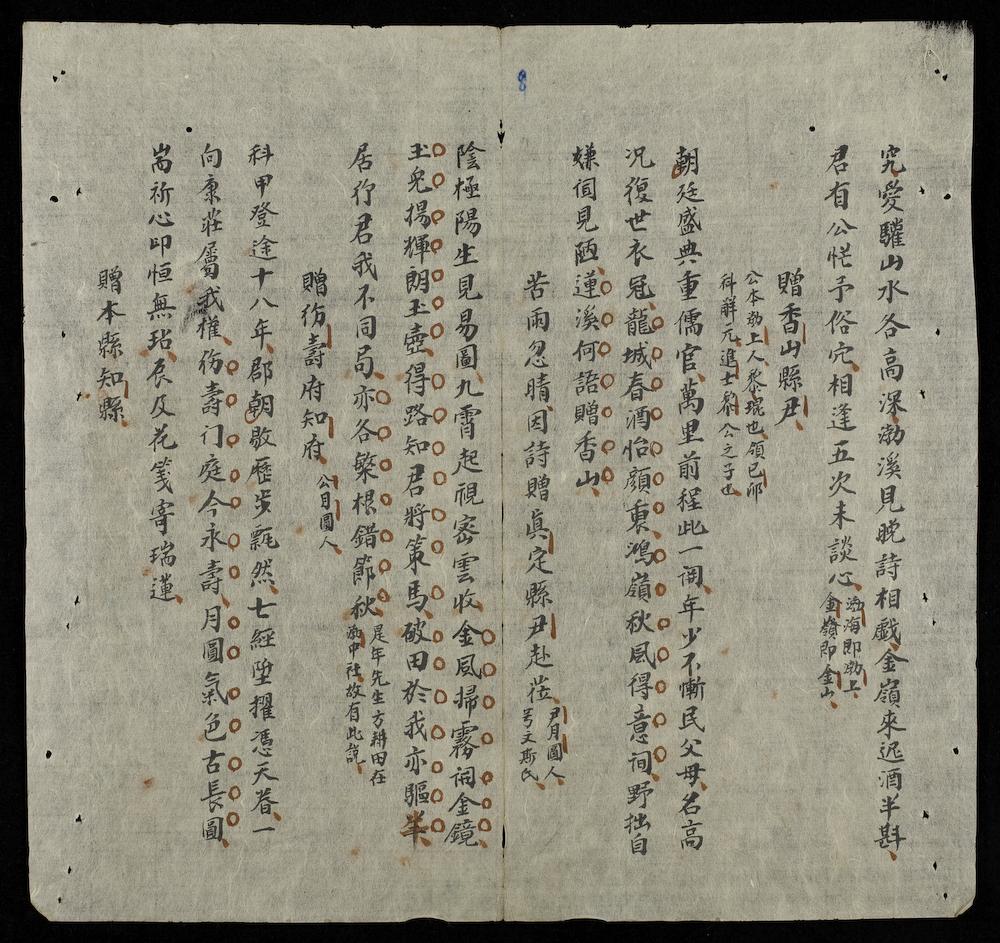 8
究愛驩山水各高深渤溪見晚詩相戲金嶺來迟酒半斟
君有公忙予俗冗相逢五次未談心渤海即渤上金嶺即金山
贈香山縣尹
公本渤上人黎琨也領已卯
科解元進士黎公之子也
朝廷盛典重儒官萬里前程此一開年少不慚民父母名高
況復世衣冠龍城春酒怡顏東鴻嶺秋風得意間野拙自
嫌聞見陋蓮溪何語贈香山
苦雨忽晴因詩贈真定縣尹赴莅尹月圓人号文斯氏
陰極陽生見易圖九霄起視密雲收金風掃霧開金鏡
玉兔揚輝朗玉壺得路知君將策馬破田於我亦驅半
居行君我不同局亦各槃根錯節秋是年先生方耕田在渤中社故有此說
贈衍壽府知府公月圓人
科甲登途十八年郡朝敭歷步飄然七經陞擢憑天眷一
向康莊屬我權衍壽门庭今永壽月圓氣色古長圓
耑祈心印恒無玷辰及花箋寄瑞蓮
贈本縣知縣